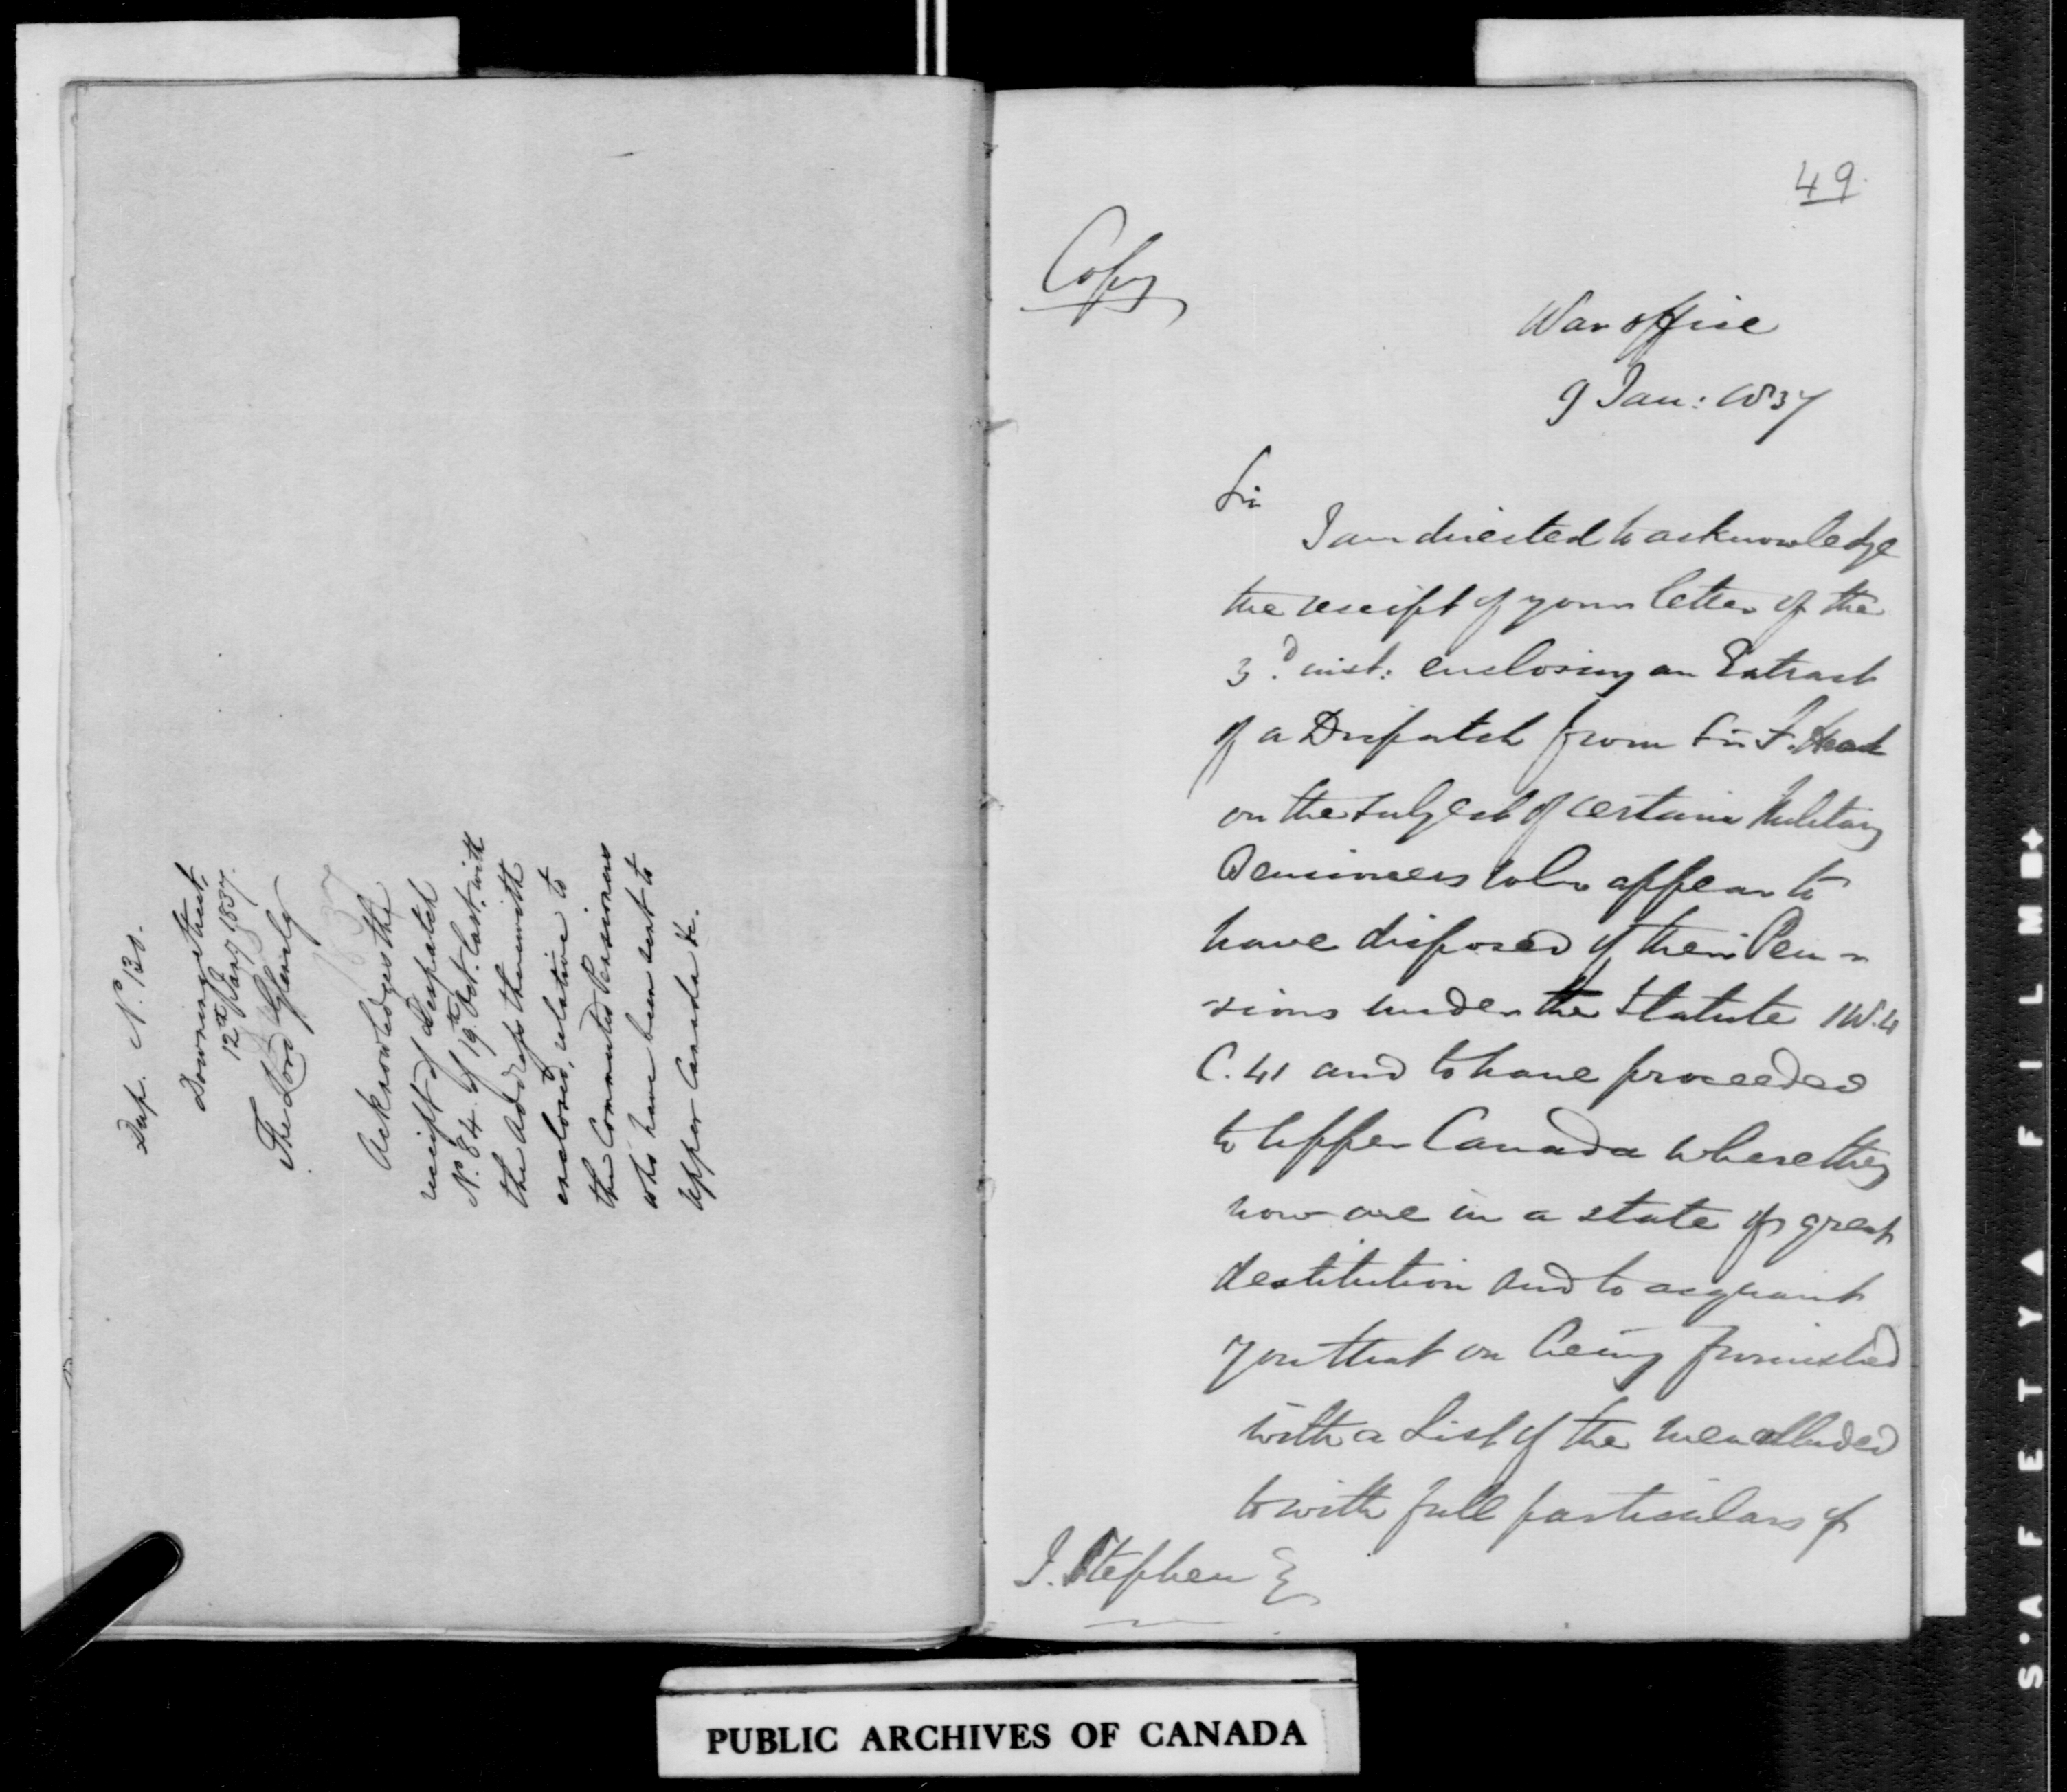 Dup. N. 130.
Downing Street
12th Jany 1837.
The Lord Glenelg
Acknowledges the
receipt of Despatch
N. 84. of 19th Oct. last, with
the Address therewith
enclosed, relative to
the Commuted Pensioners
who have been sent to
Upper Canada &c.
49.
Copy
War Office
9 Jan: 1837
Sir
I am directed to acknowledge
the receipt of your letter of the
3.D inst: enclosing an Extract
of a Dispatch from Sir F. Head
on the subject of certain Military
Pensioners who appear to
have disposed of their Pen-
sions under the Statute 1 W. 4
C. 41 and to have proceeded
to Upper Canada where they
now are in a state of great
destitution and to acquaint
you that on being furnished
with a List of the men alluded
to with full particulars of
J. Stephen E
PUBLIC ARCHIVES OF CANADA
SAFETY FILM